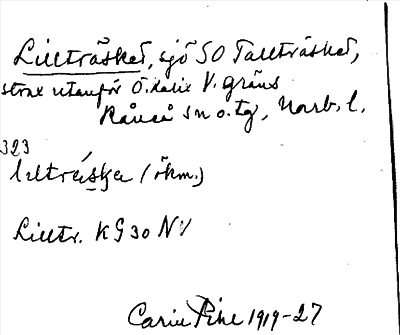 Lillträsket, sjö SO Tallträsket,
strax utanför Ö. Kalix V. gräns
Råneå sn o. tg, Norrb. l.
323
lıltrǻsķa (ökm.)
Lilltr. KG 30 NV
Carin Pihl 1919-27